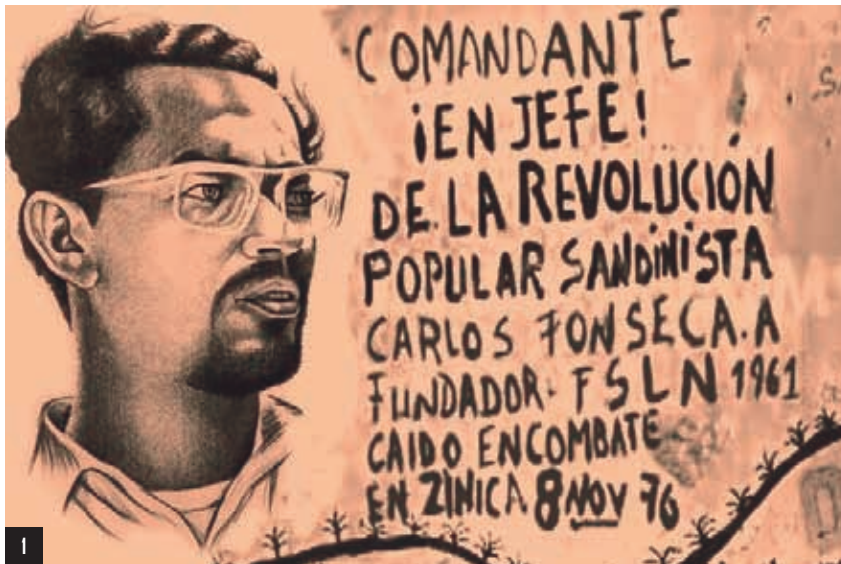 COMANDANTE
¡EN JEFE!
DE LA REVOLUCIÓN
POPULAR SANDINISTA
CARLOS FONSECA. A
FUNDADOR. FSLN 1961
CAIDO EN COMBATE
EN ZINICA 8 NOV 76
1